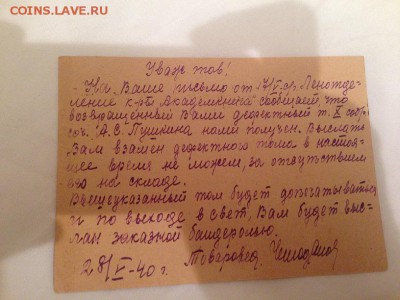 COINS.LAVE.RU
Уваж. тов!
- На Ваше письмо от 17/V с/г. Леноотде=
ление к-ры Академкнига сообщает, что
возвращенный Вами дефектный т. X собр.
соч. А.С. Пушкина нами получен. Выслать
Вам взамен дефектного тома в настоя=
щее время не можем, за отсутствием
его на складе.
Вышеуказанный том будет допечатываться
и по выходе в свет, Вам будет выс=
лан заказной бандеролью.
28/V-40 г. Товаровед